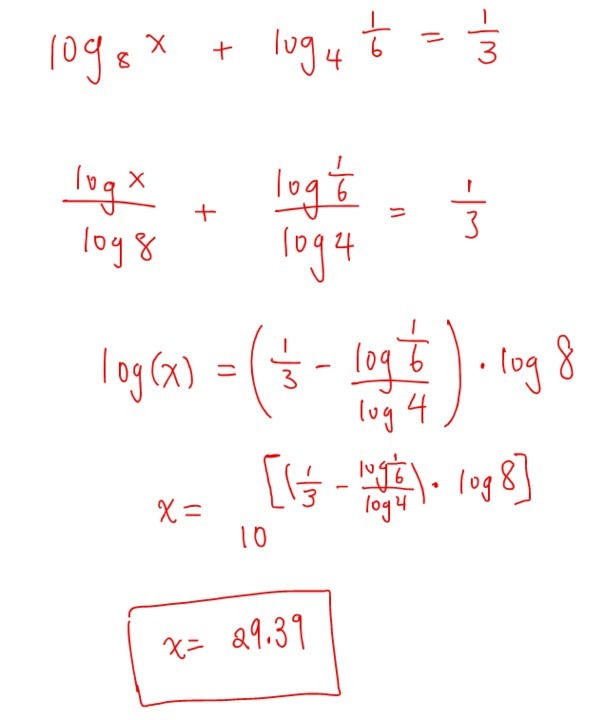 log₈ x + log₄ 1/6 = 1/3
log x / log 8 + log 1/6 / log 4 = 1/3
log(x) = (1/3 - log 1/6 / log 4) · log 8
x = 10^[(1/3 - log 1/6 / log 4) · log 8]
x = 29.39